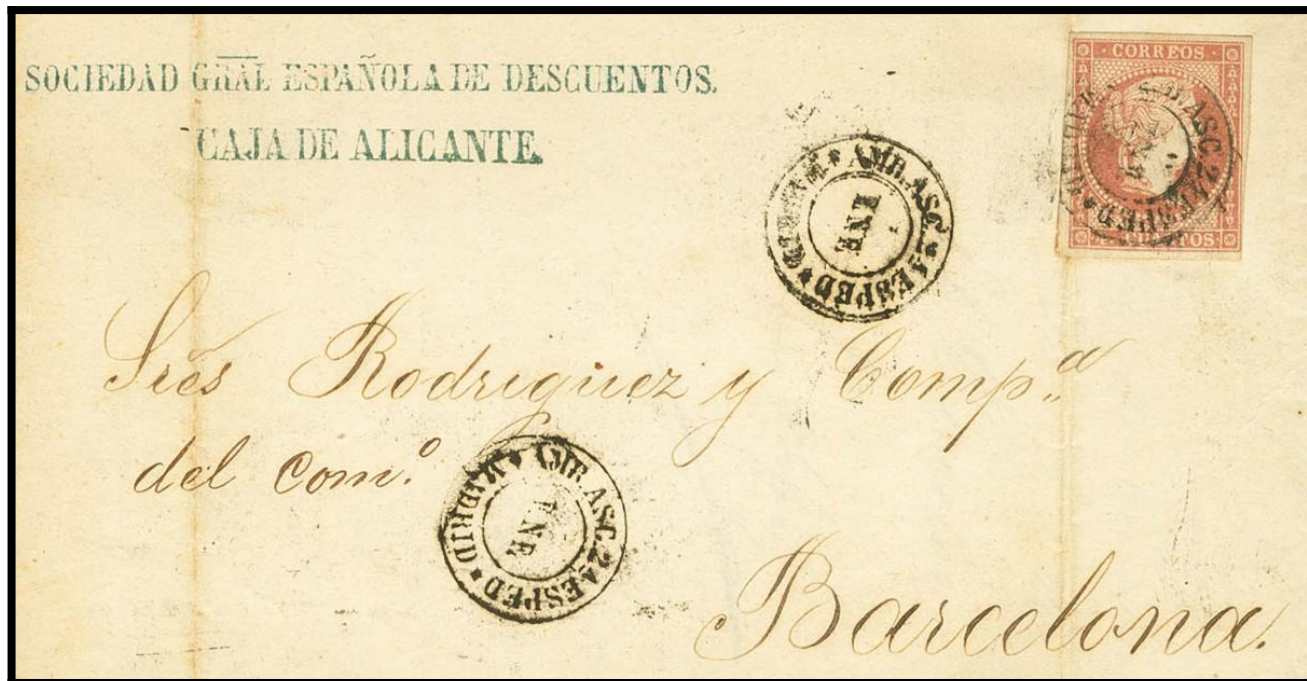 SOCIEDAD GRAL ESPAÑOLA DE DESCUENTOS.
CAJA DE ALICANTE.
CORREOS
ASC. 2A ESPED
CUARTOS
MADRID * AMB. ASC. * A ESPED *
ENE
Sres Rodriguez y Comp.a
del Com.o
MADRID * AMB. ASC. 2A ESPED *
ENE
Barcelona.